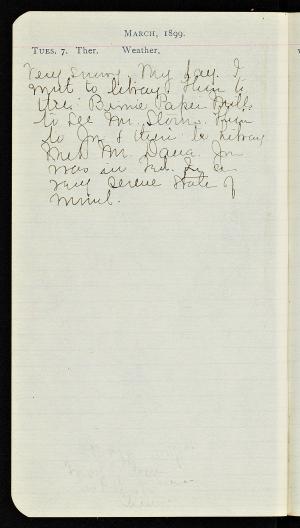 MARCH, 1899.
TUES. 7. Ther. Weather.
Very snowy. My day. I
went to library. Then to
Paper Mill
to see Mr. Storm. Then
to Jn & then to library
Met Mr. Dana. Jn
was in a
very serene state of
mind.